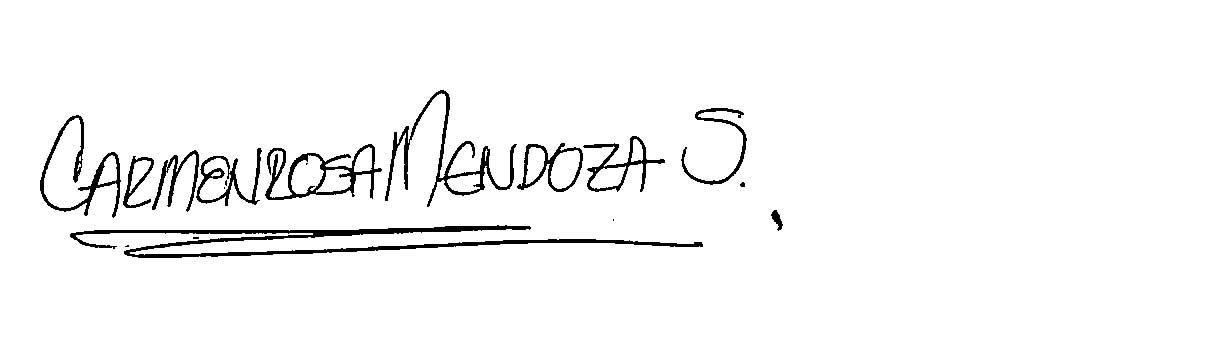 CARMENROSA MENDOZA S.